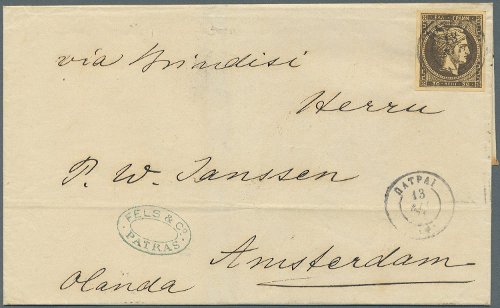 via Brindisi
Herrn
P. W. Janssen
ΠΑΤΡΑΙ
13
FELS & Co
PATRAS
Amsterdam
Olanda